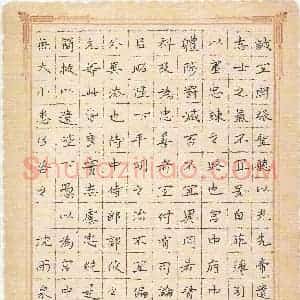 誠宜開張聖聽以光先帝遺
志士之氣不宜妄自菲薄引
以塞忠諫之路也宮中府中
體陟罰臧否不宜異同若有
科及為忠善者宜付有司論
以昭陛下平明之治不宜偏
外異法也侍中侍郎郭攸之
允等此皆良實志慮忠純是
簡拔以遺陛下愚以為宮中
無大小悉以咨之 沈雨
Shufaziliao.com